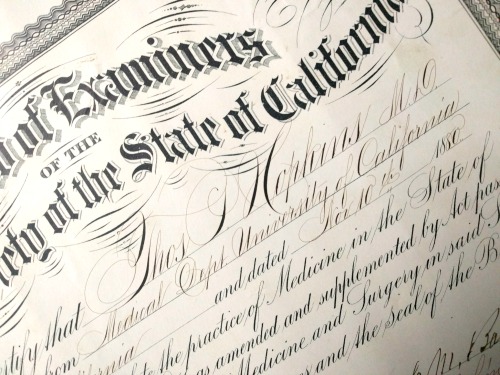 of Examiners
OF THE
of the State of California
that Thos J Hopkins M.D
from Medical Dept University of California
and dated Nov 10 1880
the practice of Medicine in the State of
as amended and supplemented by Act
Medicine and Surgery in said
and the seal of the